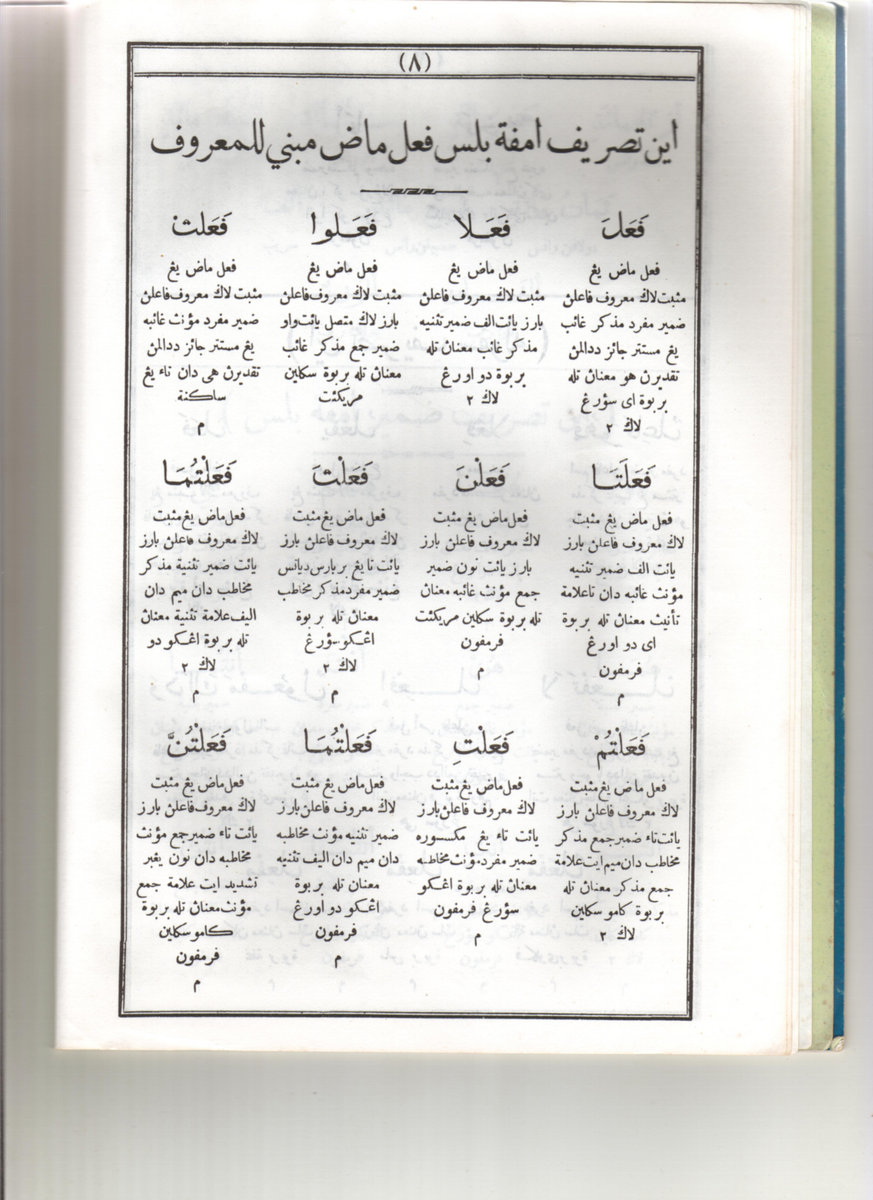 (٨)
اين تصريف امفة بلس فعل ماض مبني للمعروف
فَعَلَ
فعل ماض يغ
مثبت لاك معروف فاعلن
ضمير مفرد مذكر غائب
يغ مستتر جائز ددالمن
تقديرن هو معنان تله
بربوة اى سؤرغ
لاك ٢
فَعَلَا
فعل ماض يغ
مثبت لاك معروف فاعلن
بارز يائت الف ضمير تثنيه
مذكر غائب معنان تله
بربوة دو اورغ
لاك ٢
فَعَلوا
فعل ماض يغ
مثبت لاك معروف فاعلن
بارز لاك متصل يائت واو
ضمير جمع مذكر غائب
معنان تله بربوة سكلين
مريكئت
فَعَلَتْ
فعل ماض يغ
مثبت لاك معروف فاعلن
ضمير مفرد مؤنث غائبه
يغ مستتر جائز ددالمن
تقديرن هى دان تاء يغ
ساكنة
م
فَعَلَتَا
فعل ماض يغ مثبت
لاك معروف فاعلن بارز
يائت الف ضمير تثنيه
مؤنث غائبه دان تا علامة
تأنيث معنان تله بربوة
اى دو اورغ
فرمفون
م
فَعَلْنَ
فعل ماض يغ مثبت
لاك معروف فاعلن بارز
بارز يائت نون ضمير
جمع مؤنث غائبه معنان
تله بربوة سكلين مريكئت
فرمفون
م
فَعَلْتَ
فعل ماض يغ مثبت
لاك معروف فاعلن بارز
يائت تا يغ بربارس دياتس
ضمير مفرد مذكر مخاطب
معنان تله بربوة
اغكو سؤرغ
لاك ٢
م
فَعَلْتُمَا
فعل ماض يغ مثبت
لاك معروف فاعلن بارز
يائت ضمير تثنية مذكر
مخاطب دان ميم دان
اليف علامة تثنية معنان
تله بربوة اغكو دو
لاك ٢
م
فَعَلْتُمْ
فعل ماض يغ مثبت
لاك معروف فاعلن بارز
يائت تاء ضمير جمع مذكر
مخاطب دان ميم ايت علامة
جمع مذكر معنان تله
بربوة كامو سكلين
لاك ٢
فَعَلْتِ
فعل ماض يغ مثبت
لاك معروف فاعلن بارز
يائت تاء يغ مكسوره
ضمير مفرد مؤنث مخاطبه
معنان تله بربوة اغكو
سؤرغ فرمفون
م
فَعَلْتُمَا
فعل ماض يغ مثبت
لاك معروف فاعلن بارز
ضمير تثنيه مؤنث مخاطبه
دان ميم دان اليف تثنيه
معنان تله بربوة
اغكو دو اورغ
فرمفون
م
فَعَلْتُنَّ
فعل ماض يغ مثبت
لاك معروف فاعلن بارز
يائت تاء ضمير جمع مؤنث
مخاطبه دان نون يغبر
تشديد ايت علامة جمع
مؤنث معنان تله بربوة
كامو سكلين
فرمفون
م